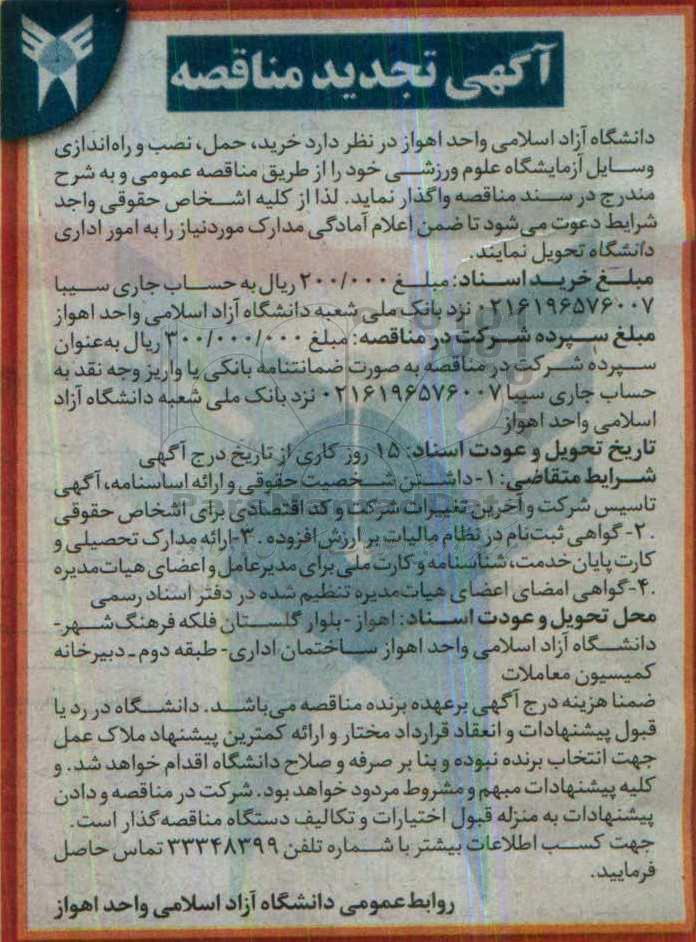 آگهی تجدید مناقصه
دانشگاه آزاد اسلامی واحد اهواز در نظر دارد خرید، حمل، نصب و راه‌اندازی
وسایل آزمایشگاه علوم ورزشی خود را از طریق مناقصه عمومی و به شرح
مندرج در سند مناقصه واگذار نماید. لذا از کلیه اشخاص حقوقی واجد
شرایط دعوت می‌شود تا ضمن اعلام آمادگی مدارک موردنیاز را به امور اداری
دانشگاه تحویل نمایند.
مبلغ خرید اسناد: مبلغ ۲۰۰/۰۰۰ ریال به حساب جاری سیبا
۰۲۱۶۱۹۶۵۷۶۰۰۷ نزد بانک ملی شعبه دانشگاه آزاد اسلامی واحد اهواز
مبلغ سپرده شرکت در مناقصه: مبلغ ۳۰۰/۰۰۰/۰۰۰ ریال به‌عنوان
سپرده شرکت در مناقصه به صورت ضمانتنامه بانکی یا واریز وجه نقد به
حساب جاری سیبا ۰۲۱۶۱۹۶۵۷۶۰۰۷ نزد بانک ملی شعبه دانشگاه آزاد
اسلامی واحد اهواز
تاریخ تحویل و عودت اسناد: ۱۵ روز کاری از تاریخ درج آگهی
شرایط متقاضی: ۱- داشتن شخصیت حقوقی و ارائه اساسنامه، آگهی
تاسیس شرکت و آخرین تغییرات شرکت و کد اقتصادی برای اشخاص حقوقی
. ۲- گواهی ثبت‌نام در نظام مالیات بر ارزش افزوده . ۳-ارائه مدارک تحصیلی و
کارت پایان خدمت، شناسنامه و کارت ملی برای مدیرعامل و اعضای هیات‌مدیره
. ۴-گواهی امضای اعضای هیات‌مدیره تنظیم شده در دفتر اسناد رسمی
محل تحویل و عودت اسناد: اهواز - بلوار گلستان فلکه فرهنگ‌شهر-
دانشگاه آزاد اسلامی واحد اهواز ساختمان اداری- طبقه دوم - دبیرخانه
کمیسیون معاملات
ضمنا هزینه درج آگهی برعهده برنده مناقصه می‌باشد. دانشگاه در رد یا
قبول پیشنهادات و انعقاد قرارداد مختار و ارائه کمترین پیشنهاد ملاک عمل
جهت انتخاب برنده نبوده و بنا بر صرفه و صلاح دانشگاه اقدام خواهد شد. و
کلیه پیشنهادات مبهم و مشروط مردود خواهد بود. شرکت در مناقصه و دادن
پیشنهادات به منزله قبول اختیارات و تکالیف دستگاه مناقصه‌گذار است.
جهت کسب اطلاعات بیشتر با شماره تلفن ۳۳۳۴۸۳۹۹ تماس حاصل
فرمایید.
روابط‌عمومی دانشگاه آزاد اسلامی واحد اهواز